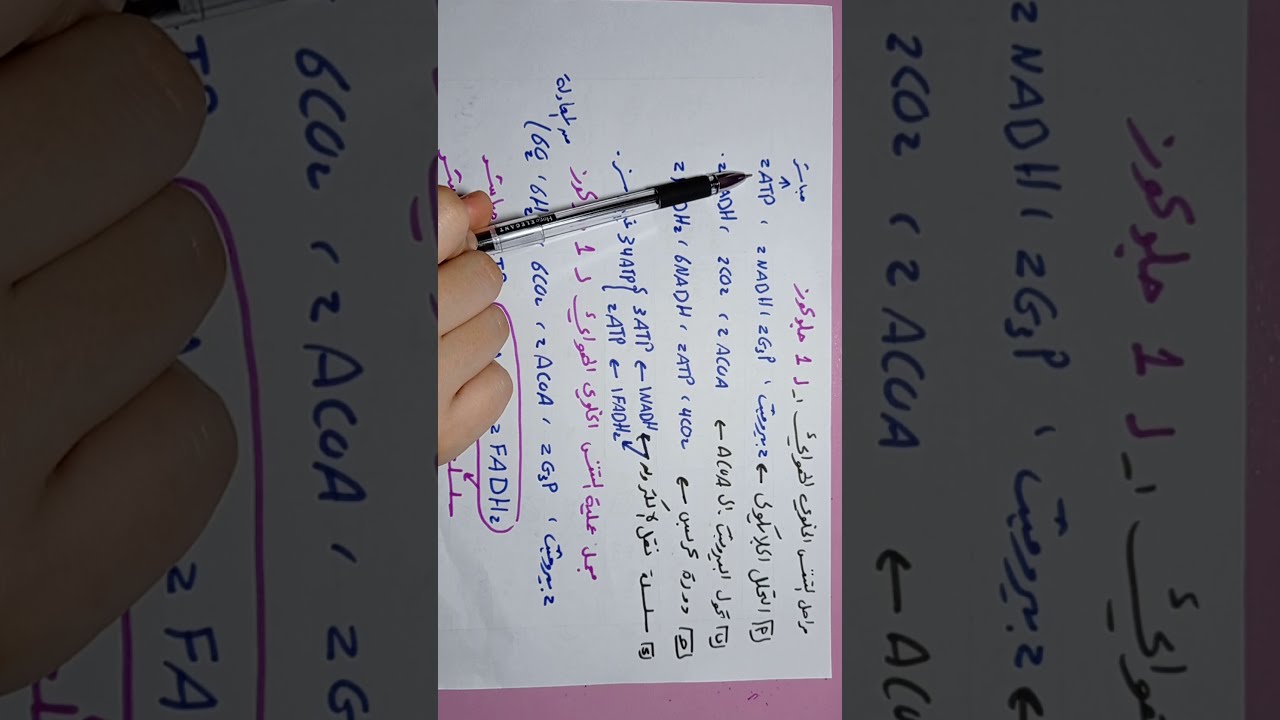 مراحل التنفس الخلوي الهوائي لـ 1 جلوكوز
مباشر
↑
أ التحلل الجلايكولي ← 2 بيروفيت ، 2G3P ، 2NADH ، 2ATP
ب تحول البيروفيت الى ACOA ← 2ACOA ، 2CO2 ، 2NADH
ج دورة كربس ← 4CO2 ، 2ATP ، 6NADH ، 2FADH2
د سلسلة نقل الإلكترون ← 1NADH ← 3ATP
1FADH2 ← 2ATP } 34ATP
مجمل عملية التنفس الخلوي الهوائي لـ 1 جلوكوز
2 بيروفيت ، 2G3P ، 2ACOA ، 6CO2 ، 6H2 ، 6O2) من المعادلة
2FADH2
HiproELEGANT